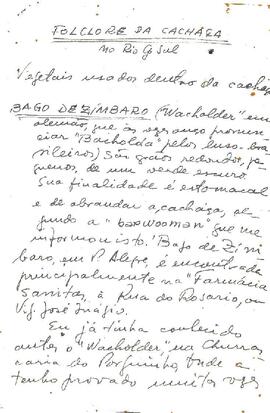 FOLCLORE DA CACHAÇA
no Rio G. Sul
Vegetais usados dentro da cachaça
BAGO DE ZIMBARO ("Wacholder" em
alemão, que às vezes ouço pronun
ciar "Bacholda" pelos luso-bra
sileiros) São grãos redondos, pe
quenos, de um verde escuro.
Sua finalidade é estomacal
e de abrandar a cachaça, se
gundo a "barwooman" que me
informou isto. Bago de Zim
baro, em P. Alegre, é encontrado
principalmente na "Farmácia
Sanitas, à Rua do Rosario, ou
Vig. José Inágio.
Eu já tinha conhecido
antes, o "Wacholder", na Churras
caria do Porquinho, onde a
tenho provado muitas vezes